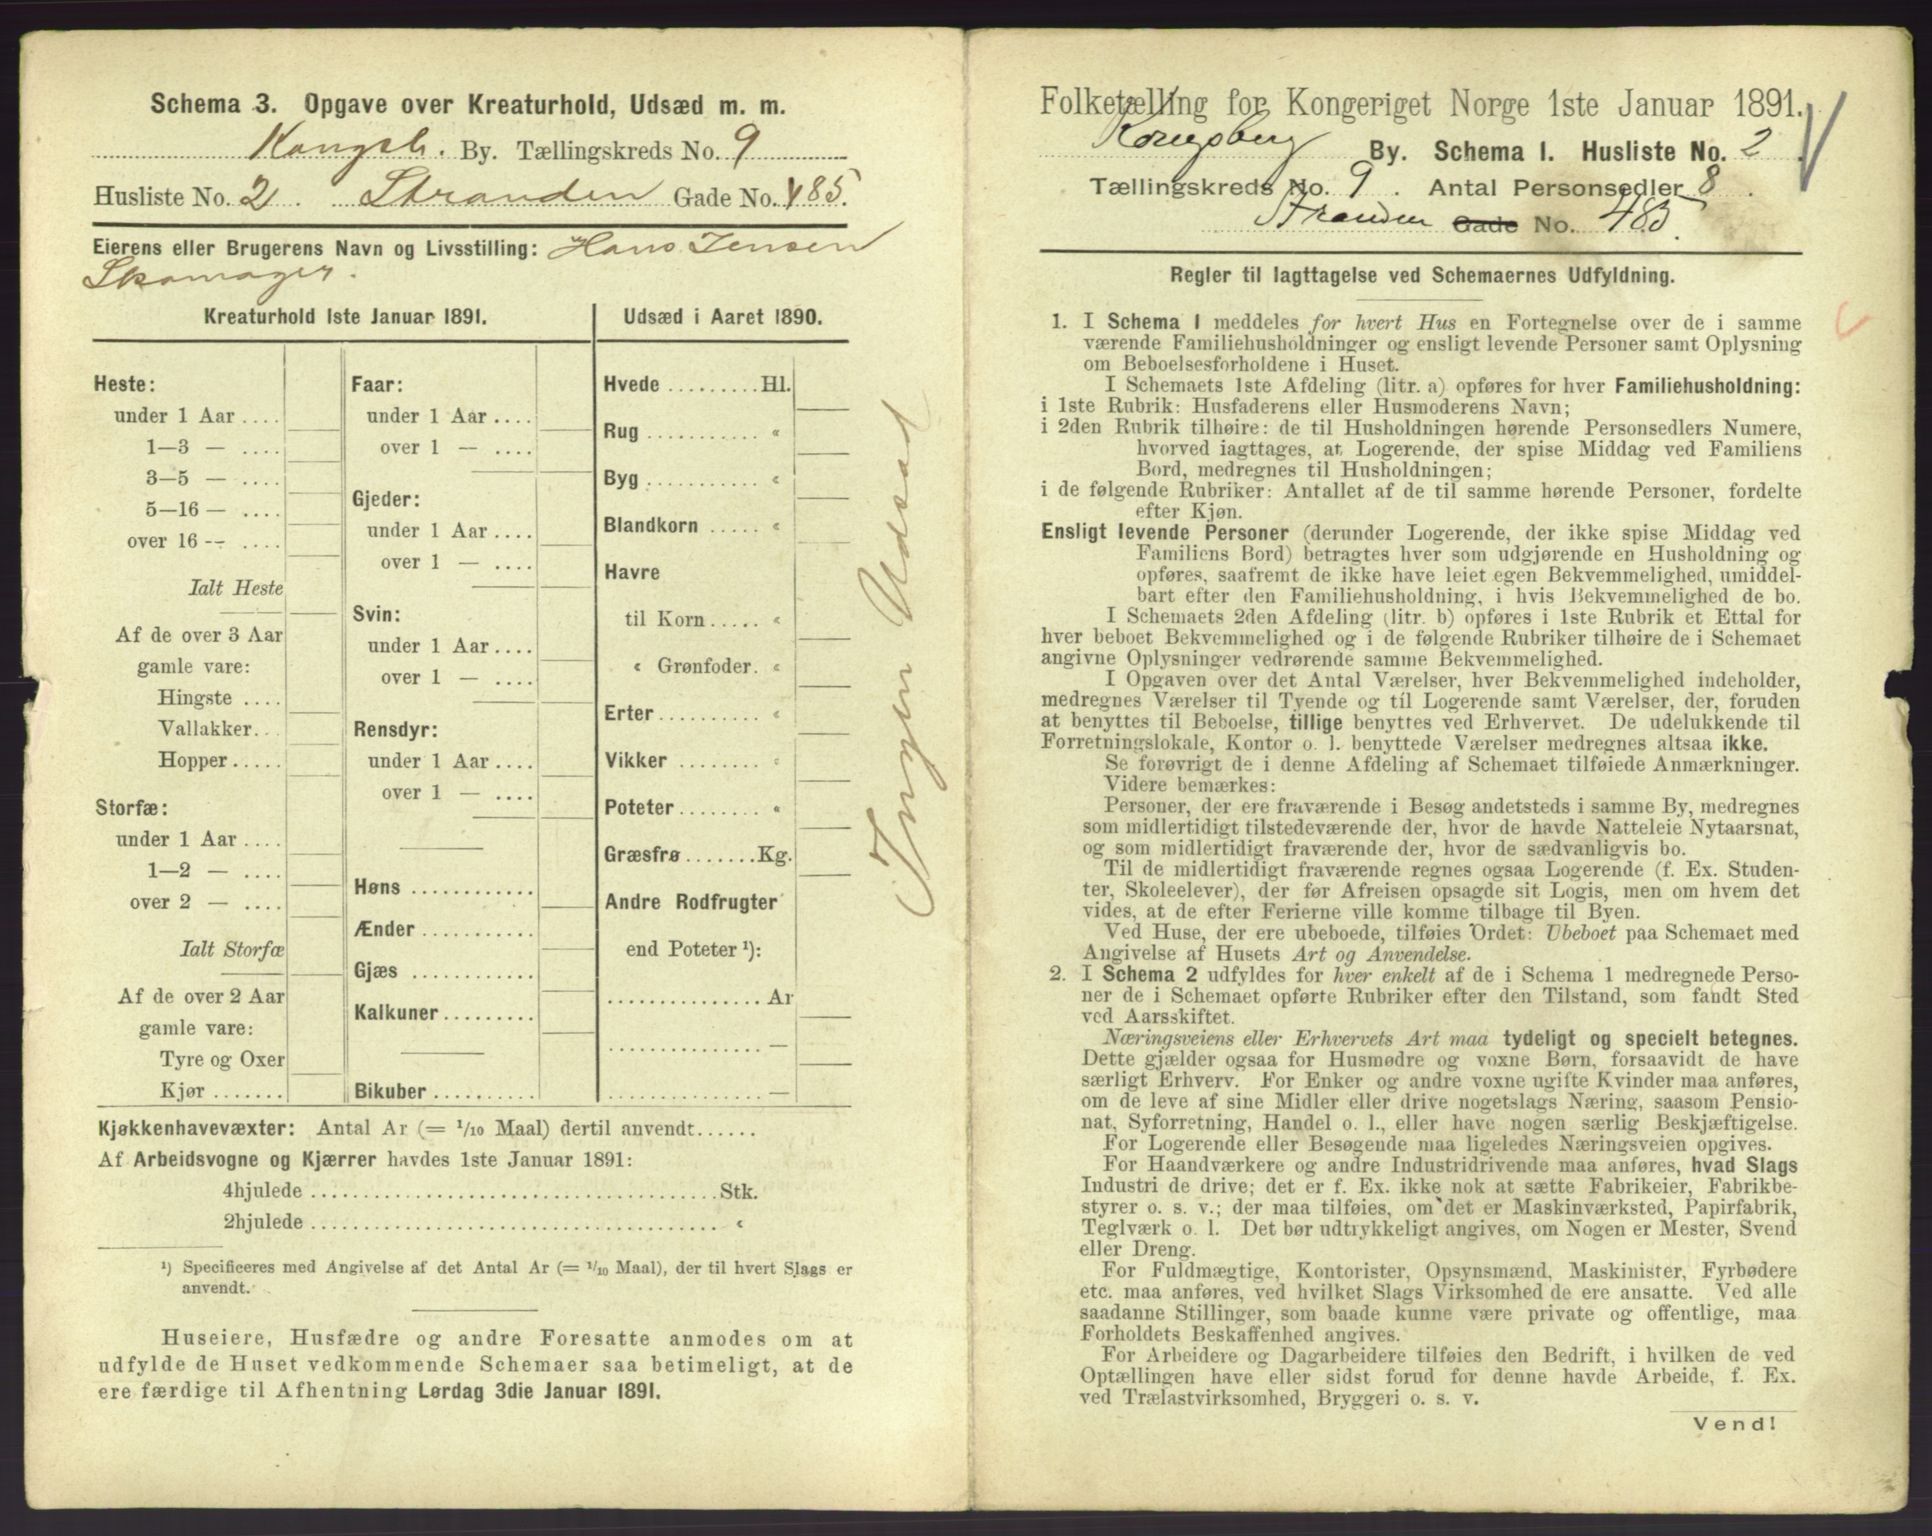 Schema 3. Opgave over Kreaturhold, Udsæd m. m.
Kongsb. By. Tællingskreds No. 9
Husliste No. 2. Stranden Gade No. 485.
Eierens eller Brugerens Navn og Livsstilling: Hans Jensen
Skomager.
Kreaturhold 1ste Januar 1891.
Heste:
under 1 Aar ....
1—3 — ....
3—5 — ....
5—16 — ....
over 16 -- ....
Ialt Heste
Af de over 3 Aar
gamle vare:
Hingste ....
Vallakker...
Hopper.....
Storfæ:
under 1 Aar....
1—2 — ....
over 2 — ....
Ialt Storfæ
Af de over 2 Aar
gamle vare:
Tyre og Oxer
Kjør .......
Faar:
under 1 Aar....
over 1 — ....
Gjeder:
under 1 Aar....
over 1 — ....
Svin:
under 1 Aar....
over 1 — ....
Rensdyr:
under 1 Aar....
over 1 — ....
Høns ............
Ænder ...........
Gjæs ............
Kalkuner.........
Bikuber ..........
Udsæd i Aaret 1890.
Hvede .........Hl.
Rug ........... «
Byg ........... «
Blandkorn ..... «
Havre
til Korn..... «
« Grønfoder. «
Erter.......... «
Vikker ........ «
Poteter........ «
Græsfrø.......Kg.
Andre Rodfrugter
end Poteter ¹):
............... Ar
............... —
............... —
Ingen Udsæd
Kjøkkenhavevæxter: Antal Ar (= 1/10 Maal) dertil anvendt......
Af Arbeidsvogne og Kjærrer havdes 1ste Januar 1891:
4hjulede ........................................Stk.
2hjulede ........................................ «
¹) Specificeres med Angivelse af det Antal Ar (= 1/10 Maal), der til hvert Slags er
anvendt.
Huseiere, Husfædre og andre Foresatte anmodes om at
udfylde de Huset vedkommende Schemaer saa betimeligt, at de
ere færdige til Afhentning Lørdag 3die Januar 1891.
Folketælling for Kongeriget Norge 1ste Januar 1891.
Kongsberg By. Schema 1. Husliste No. 2.
Tællingskreds No. 9. Antal Personsedler 8.
Stranden Gade No. 485.
Regler til Iagttagelse ved Schemaernes Udfyldning.
1. I Schema 1 meddeles for hvert Hus en Fortegnelse over de i samme
værende Familiehusholdninger og ensligt levende Personer samt Oplysning
om Beboelsesforholdene i Huset.
I Schemaets 1ste Afdeling (litr. a) opføres for hver Familiehusholdning:
i 1ste Rubrik: Husfaderens eller Husmoderens Navn;
i 2den Rubrik tilhøire: de til Husholdningen hørende Personsedlers Numere,
hvorved iagttages, at Logerende, der spise Middag ved Familiens
Bord, medregnes til Husholdningen;
i de følgende Rubriker: Antallet af de til samme hørende Personer, fordelte
efter Kjøn.
Ensligt levende Personer (derunder Logerende, der ikke spise Middag ved
Familiens Bord) betragtes hver som udgjørende en Husholdning og
opføres, saafremt de ikke have leiet egen Bekvemmelighed, umiddel-
bart efter den Familiehusholdning, i hvis Bekvemmelighed de bo.
I Schemaets 2den Afdeling (litr. b) opføres i 1ste Rubrik et Ettal for
hver beboet Bekvemmelighed og i de følgende Rubriker tilhøire de i Schemaet
angivne Oplysninger vedrørende samme Bekvemmelighed.
I Opgaven over det Antal Værelser, hver Bekvemmelighed indeholder,
medregnes Værelser til Tyende og til Logerende samt Værelser, der, foruden
at benyttes til Beboelse, tillige benyttes ved Erhvervet. De udelukkende til
Forretningslokale, Kontor o. l. benyttede Værelser medregnes altsaa ikke.
Se forøvrigt de i denne Afdeling af Schemaet tilføiede Anmærkninger.
Videre bemærkes:
Personer, der ere fraværende i Besøg andetsteds i samme By, medregnes
som midlertidigt tilstedeværende der, hvor de havde Natteleie Nytaarsnat,
og som midlertidigt fraværende der, hvor de sædvanligvis bo.
Til de midlertidigt fraværende regnes ogsaa Logerende (f. Ex. Studen-
ter, Skoleelever), der før Afreisen opsagde sit Logis, men om hvem det
vides, at de efter Ferierne ville komme tilbage til Byen.
Ved Huse, der ere ubeboede, tilføies Ordet: Ubeboet paa Schemaet med
Angivelse af Husets Art og Anvendelse.
2. I Schema 2 udfyldes for hver enkelt af de i Schema 1 medregnede Perso-
ner de i Schemaet opførte Rubriker efter den Tilstand, som fandt Sted
ved Aarsskiftet.
Næringsveiens eller Erhvervets Art maa tydeligt og specielt betegnes.
Dette gjælder ogsaa for Husmødre og voxne Børn, forsaavidt de have
særligt Erhverv. For Enker og andre voxne ugifte Kvinder maa anføres,
om de leve af sine Midler eller drive nogetslags Næring, saasom Pensio-
nat, Syforretning, Handel o. l., eller have nogen særlig Beskjæftigelse.
For Logerende eller Besøgende maa ligeledes Næringsveien opgives.
For Haandværkere og andre Industridrivende maa anføres, hvad Slags
Industri de drive; det er f. Ex. ikke nok at sætte Fabrikeier, Fabrikbe-
styrer o. s. v.; der maa tilføies, om det er Maskinværksted, Papirfabrik,
Teglværk o. l. Det bør udtrykkeligt angives, om Nogen er Mester, Svend
eller Dreng.
For Fuldmægtige, Kontorister, Opsynsmænd, Maskinister, Fyrbødere
etc. maa anføres, ved hvilket Slags Virksomhed de ere ansatte. Ved alle
saadanne Stillinger, som baade kunne være private og offentlige, maa
Forholdets Beskaffenhed angives.
For Arbeidere og Dagarbeidere tilføies den Bedrift, i hvilken de ved
Optællingen have eller sidst forud for denne havde Arbeide, f. Ex.
ved Trælastvirksomhed, Bryggeri o. s. v.
Vend!